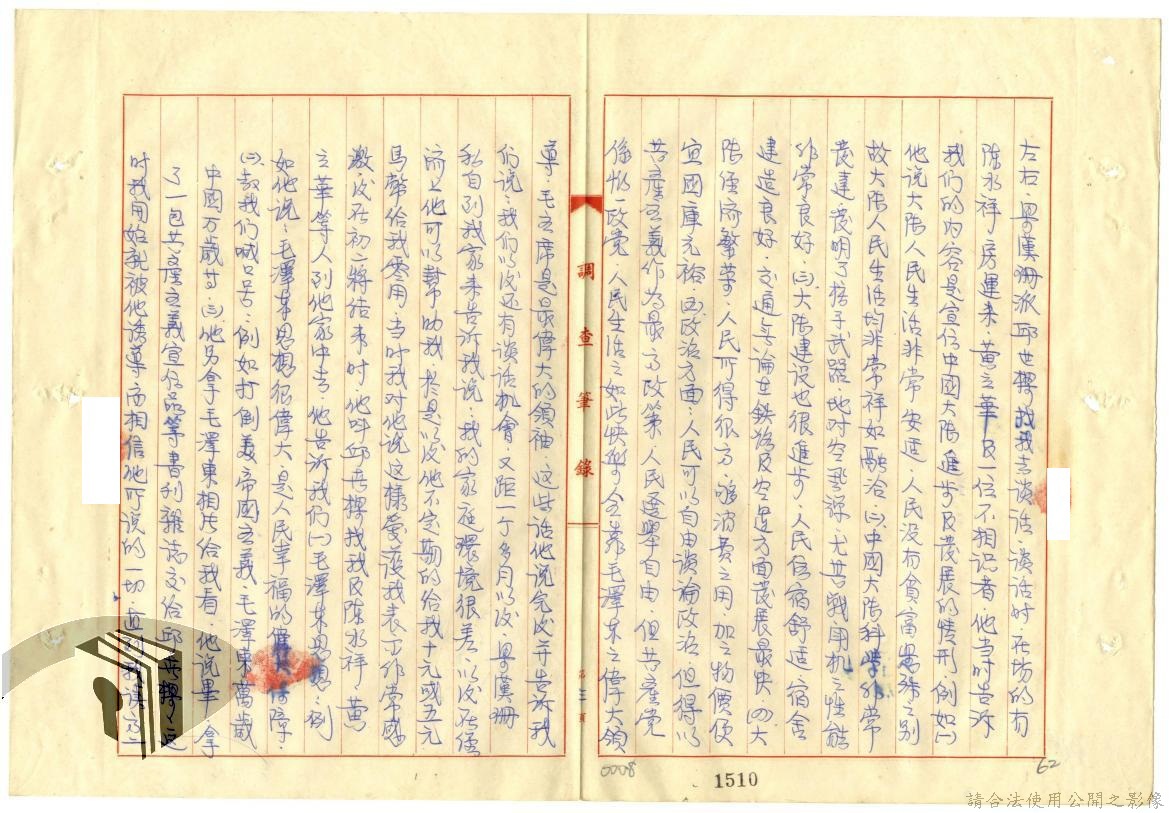 左右，吳漢珊派邱世樑找我去談話，談話时在場的有
陈水祥，房運来，黄立華及一位不相识者，他当时告訴
我们的内容是宣传中國大陆進步及發展的情形，例如(一)
他说大陆人民生活非常安适，人民没有貪富之别
故大陆人民生活均非常祥如融洽，(二)中國大陆科學非常
發達發明了核子武器，地对空飛弹尤其戰用机之性能
非常良好，(三)大陆建设也很進步，人民住宿舒适，宿舍
建造良好，交通无論在鉄路及空運方面發展最快，(四)大
陆经济繁荣，人民所得很高，够消费之用，加之物價便
宜國庫充裕，(五)政治方面，人民可以自由谈論政治，但得以
共產主義作為最高政策，人民選舉自由，但共產党
係惟一政党，人民生活之如此快樂，全靠毛澤东之偉大領
導，毛主席是最偉大的領袖，这些话他说完後並告訴我
们说，我们以後还有谈话机會，又距一个多月以後，吳漢珊
私自到我家来告訴我说，我的家庭環境很差，以後在经
济上他可以幫助我，於是以後他不定期的给我十元或五元
馬幣给我零用，当时我对他说这樣愛護我表示非常感
激，後在初二将结束时，他叫邱世樑找我及陈水祥，黄
立華等人到他家中去，他告訴我们(一)毛澤东思想，例
如他说：毛澤东思想很偉大，是人民幸福的保障，
(二)教我们喊口号，例如打倒美帝國主義，毛澤东萬歲
中國万歲等，(三)他另拿毛澤東相片给我看，他说畢拿
了一包共產主義宣传品等書刊雜誌交给邱世樑，这
时我開始就被他誘導而相信他所说的一切，直到我读高
調查筆錄
第三頁
0008
1510
62
請合法使用公開之影像